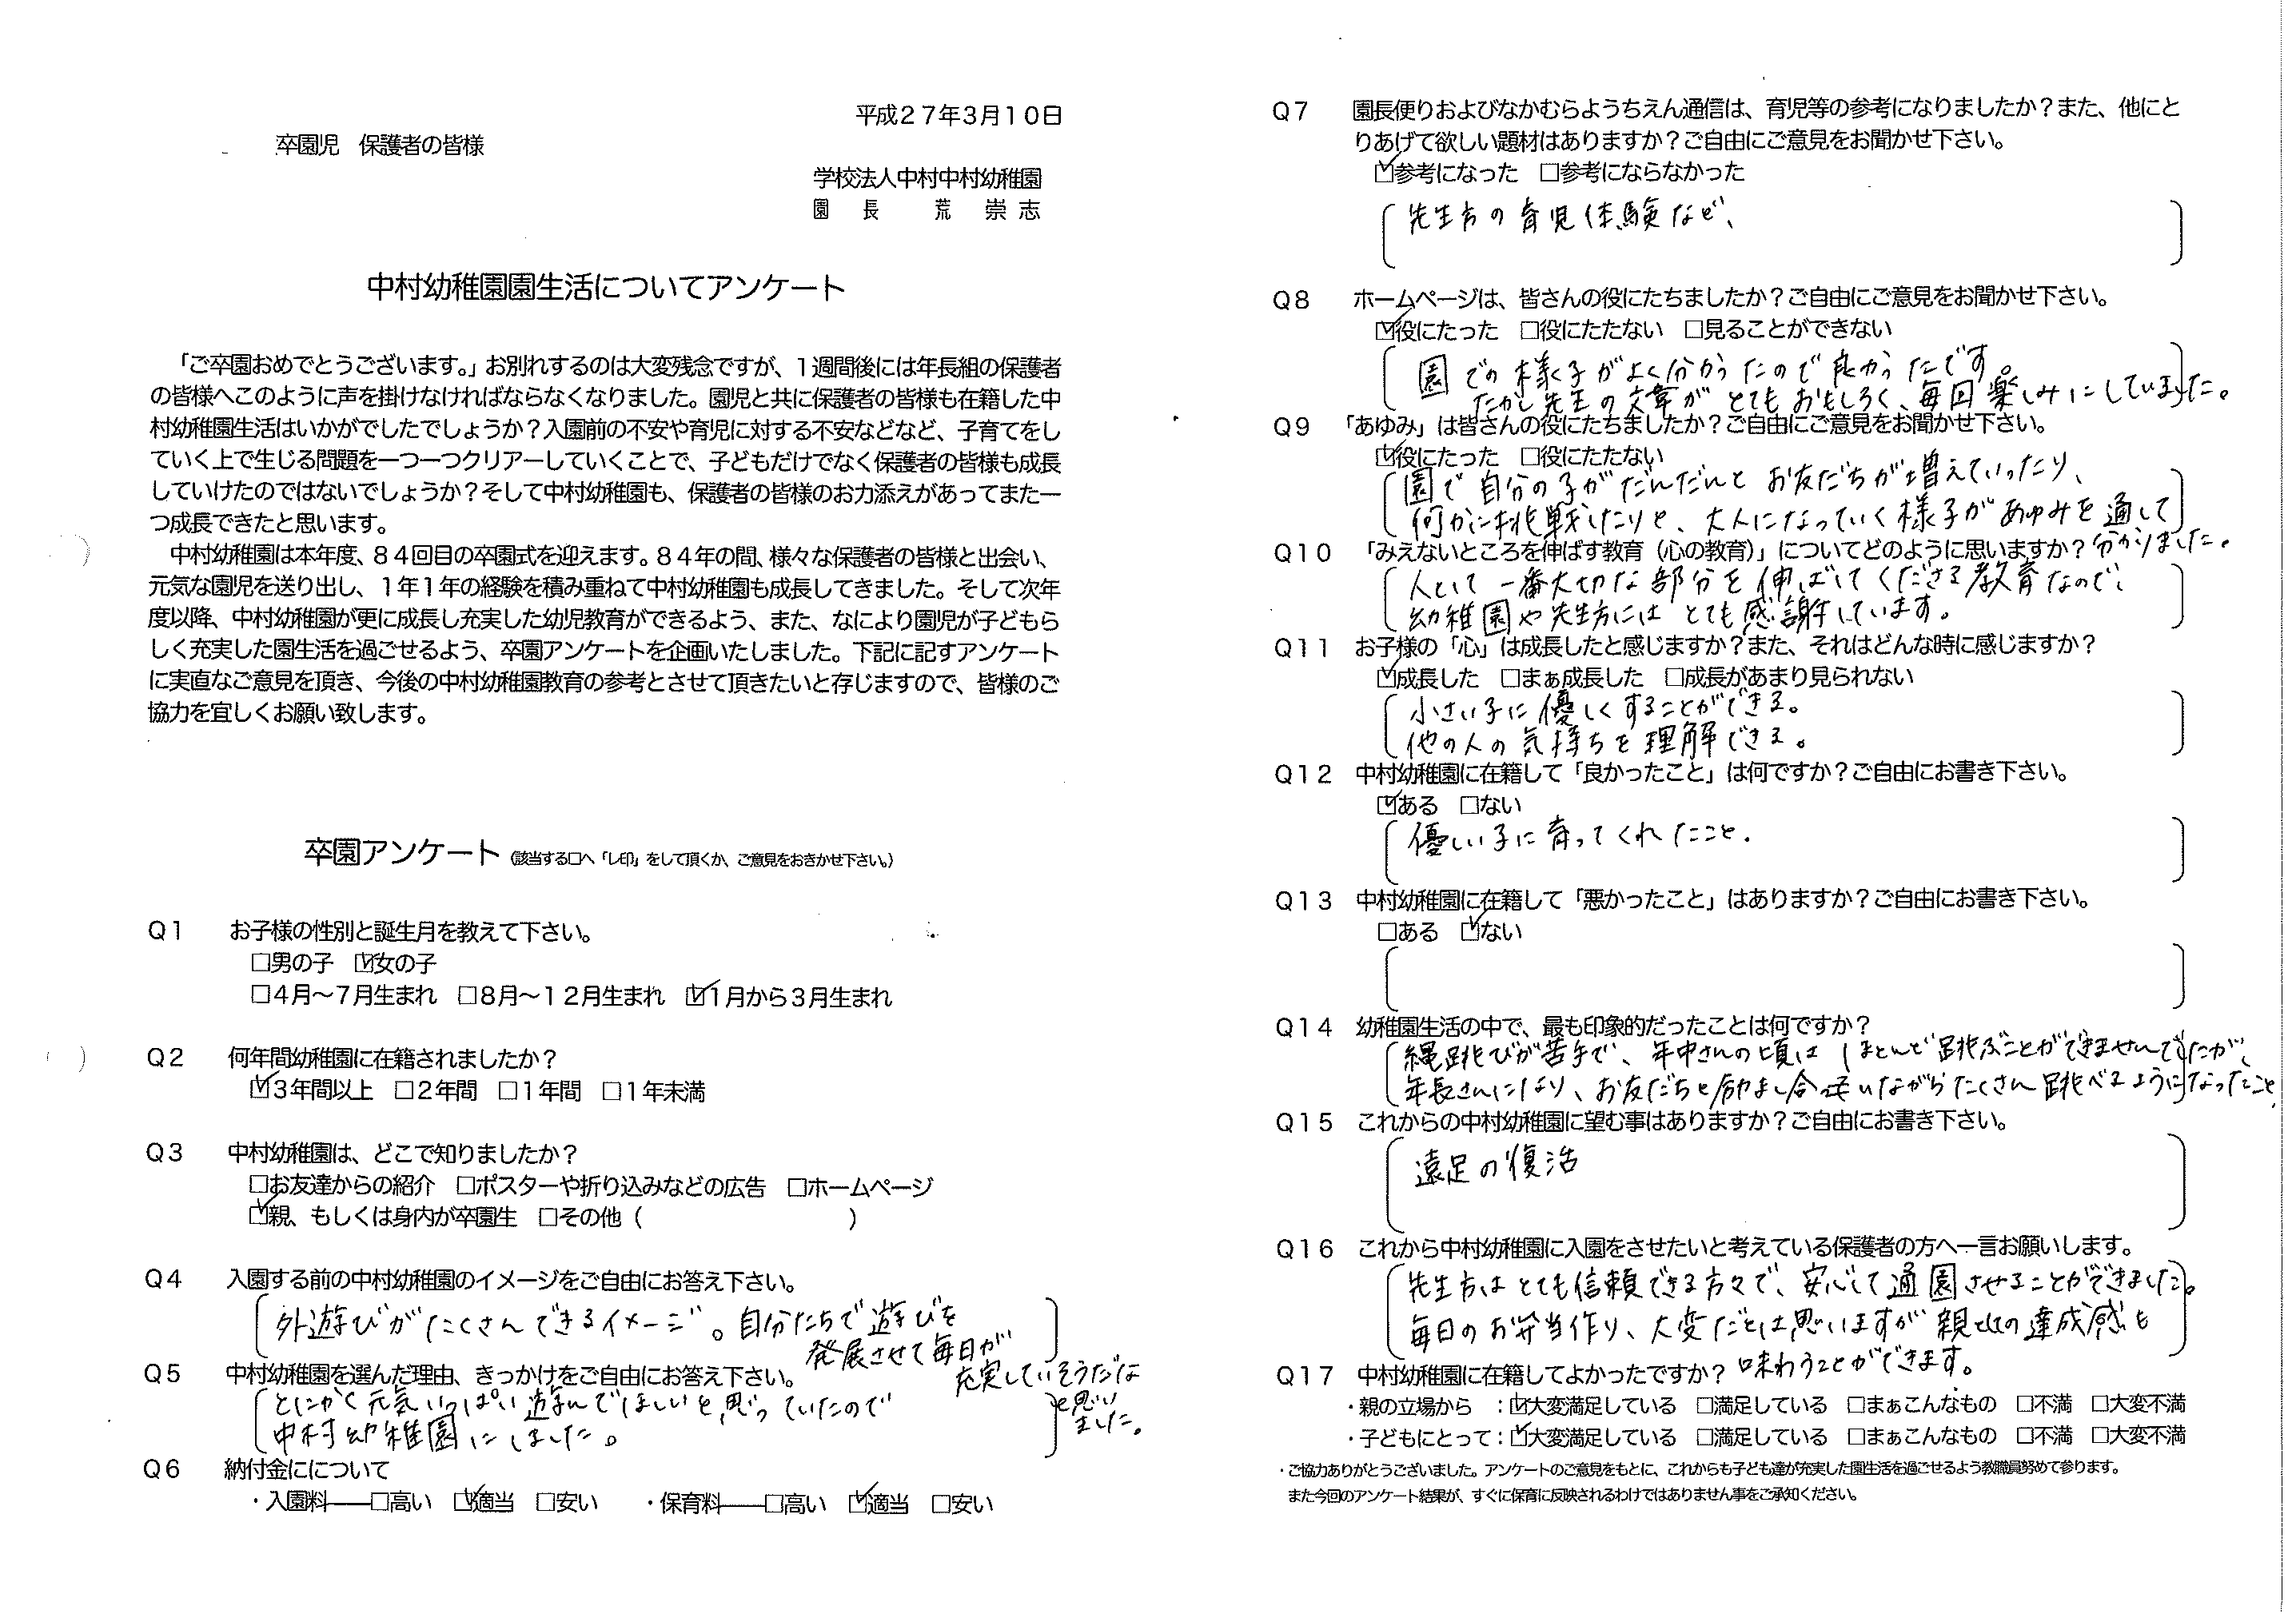 平成27年3月10日
卒園児　保護者の皆様
学校法人中村中村幼稚園
園　長　　荒　崇志
中村幼稚園園生活についてアンケート
「ご卒園おめでとうございます。」お別れするのは大変残念ですが、1週間後には年長組の保護者
の皆様へこのように声を掛けなければならなくなりました。園児と共に保護者の皆様も在籍した中
村幼稚園生活はいかがでしたでしょうか?入園前の不安や育児に対する不安などなど、子育てをし
ていく上で生じる問題を一つ一つクリアーしていくことで、子どもだけでなく保護者の皆様も成長
していけたのではないでしょうか?そして中村幼稚園も、保護者の皆様のお力添えがあってまた一
つ成長できたと思います。
中村幼稚園は本年度、84回目の卒園式を迎えます。84年の間、様々な保護者の皆様と出会い、
元気な園児を送り出し、1年1年の経験を積み重ねて中村幼稚園も成長してきました。そして次年
度以降、中村幼稚園が更に成長し充実した幼児教育ができるよう、また、なにより園児が子どもら
しく充実した園生活を過ごせるよう、卒園アンケートを企画いたしました。下記に記すアンケート
に実直なご意見を頂き、今後の中村幼稚園教育の参考とさせて頂きたいと存じますので、皆様のご
協力を宜しくお願い致します。
卒園アンケート（該当する□へ「レ印」をして頂くか、ご意見をおきかせ下さい。）
Q1　お子様の性別と誕生月を教えて下さい。
□男の子　☑女の子
□4月～7月生まれ　□8月～12月生まれ　☑1月から3月生まれ
Q2　何年間幼稚園に在籍されましたか?
☑3年間以上　□2年間　□1年間　□1年未満
Q3　中村幼稚園は、どこで知りましたか?
□お友達からの紹介　□ポスターや折り込みなどの広告　□ホームページ
☑親、もしくは身内が卒園生　□その他（　　　　）
Q4　入園する前の中村幼稚園のイメージをご自由にお答え下さい。
外遊びがたくさんできるイメージ。自分たちで遊びを
発展させて毎日が
充実していそうだな
と思い
ました。
Q5　中村幼稚園を選んだ理由、きっかけをご自由にお答え下さい。
とにかく元気いっぱい遊んでほしいと思っていたので
中村幼稚園にしました。
Q6　納付金にについて
・入園料――□高い　☑適当　□安い　・保育料――□高い　☑適当　□安い
Q7　園長便りおよびなかむらようちえん通信は、育児等の参考になりましたか?また、他にと
りあげて欲しい題材はありますか?ご自由にご意見をお聞かせ下さい。
☑参考になった　□参考にならなかった
先生方の育児体験など、
Q8　ホームページは、皆さんの役にたちましたか?ご自由にご意見をお聞かせ下さい。
☑役にたった　□役にたたない　□見ることができない
園での様子がよく分かったので良かったです。
たかし先生の文章がとてもおもしろく、毎回楽しみにしていました。
Q9　「あゆみ」は皆さんの役にたちましたか?ご自由にご意見をお聞かせ下さい。
☑役にたった　□役にたたない
園で自分の子がだんだんとお友だちが増えていったり、
何かに挑戦したりと、大人になっていく様子があゆみを通して
分かりました。
Q10　「みえないところを伸ばす教育（心の教育）」についてどのように思いますか?
人として一番大切な部分を伸ばしてくださる教育なので、
幼稚園や先生方にはとても感謝しています。
Q11　お子様の「心」は成長したと感じますか?また、それはどんな時に感じますか?
☑成長した　□まぁ成長した　□成長があまり見られない
小さい子に優しくすることができる。
他の人の気持ちを理解できる。
Q12　中村幼稚園に在籍して「良かったこと」は何ですか?ご自由にお書き下さい。
☑ある　□ない
優しい子に育ってくれたこと.
Q13　中村幼稚園に在籍して「悪かったこと」はありますか?ご自由にお書き下さい。
□ある　☑ない
Q14　幼稚園生活の中で、最も印象的だったことは何ですか?
縄跳びが苦手で、年中さんの頃はほとんど跳ぶことができませんでしたが、
年長さんになり、お友だちと励まし合いながらたくさん跳べるようになったこと
Q15　これからの中村幼稚園に望む事はありますか?ご自由にお書き下さい。
遠足の復活
Q16　これから中村幼稚園に入園をさせたいと考えている保護者の方へ一言お願いします。
先生方はとても信頼できる方々で、安心して通園させることができました。
毎日のお弁当作り、大変だとは思いますが親の達成感も
味わうことができます。
Q17　中村幼稚園に在籍してよかったですか?
・親の立場から　：☑大変満足している　□満足している　□まぁこんなもの　□不満　□大変不満
・子どもにとって：☑大変満足している　□満足している　□まぁこんなもの　□不満　□大変不満
・ご協力ありがとうございました。アンケートのご意見をもとに、これからも子ども達が充実した園生活を過ごせるよう教職員努めて参ります。
また今回のアンケート結果が、すぐに保育に反映されるわけではありません事をご承知ください。